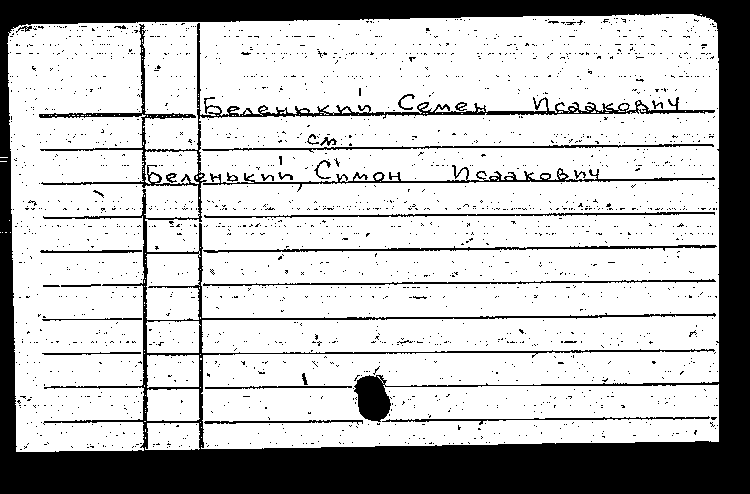 Беленький Семен Исаакович
см:
Беленький, Симон Исаакович